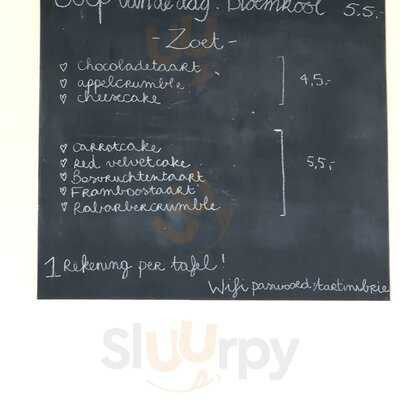 Soep van de dag: Bloemkool 5,5.-
- Zoet -
♡ chocoladetaart
♡ appelcrumble 4,5.-
♡ cheesecake
♡ carrotcake
♡ Red velvetcake
♡ Bosvruchtentaart 5,5,-
♡ Framboostaart
♡ Rabarbercrumble
1 Rekening per tafel!
Wifi paswoord: tartinebrie
Sluurpy